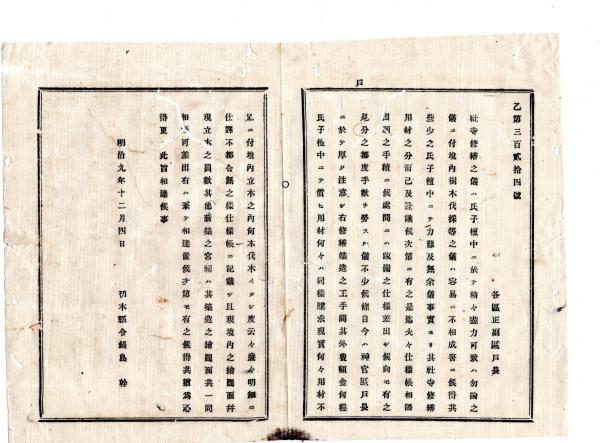 戸
乙第三百貳拾四號
各區正副區戸長
社寺修繕之儀ハ氏子檀中ニ於テ精々盡力可致ハ勿論之
儀ニ付境内樹木伐採等之儀ハ容易ニ不相成筈ニ候得共
些少之氏子檀中ニテ力難及無余儀事實ニヨリ其社寺修繕
用材之分而己及詮議候次第モ有之是迄夫々仕様帳相添
出願之手續ニ候處間ニハ疎漏之仕様差出シ候向モ有之
見分之都度手數ヲ勞スル儀不少候條自今ハ神官區戸長
ニ於テ厚ク注意シ右修繕築造之工手間其外費額金何程
氏子檀中ニテ償ヒ用材何々ハ同様購求現實何々用材不
足ニ付境内立木之内何本伐木イタシ度云々廉々明細ニ
仕譯不都合無之様仕様帳ニ記載シ且現境内之繪圖面幷
現立木之員數其他新築之宮祠ハ其築造之繪圖面共一同
相添可差出右ハ兼テ相達置候次第モ有之候得共猶為心
得更ニ此旨相達候事
明治九年十二月四日
栃木縣令鍋島 幹